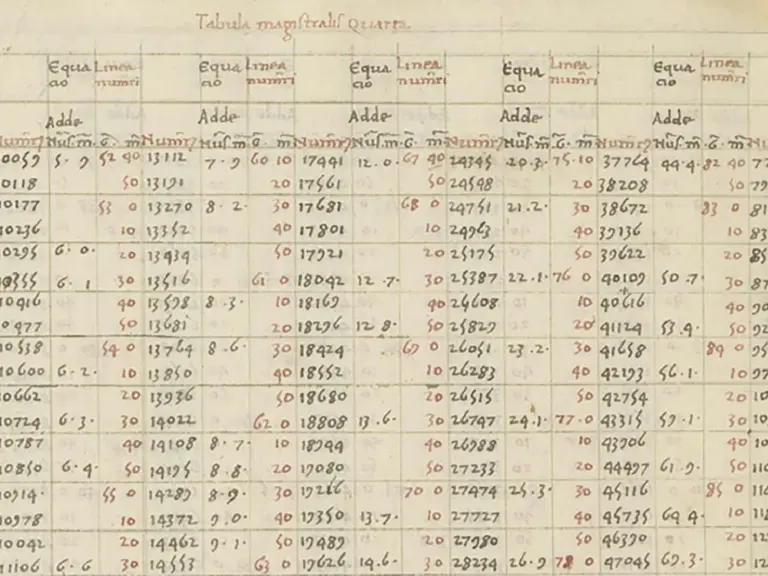 Tabula magistralis Quarta
Equa Linea Equa Linea Equa Linea Equa Linea Equa Linea
cio num̃ri cio num̃ri cio num̃ri cio num̃ri cio num̃ri
Adde Adde Adde Adde Adde
0059 5.9 52 40 13112 7.9 60 10 17441 12.0 67 40 24345 20.3. 75.10 37764 44.4. 82 40 77
0118 50 13191 20 17561 50 24548 20 38208 50 79
0177 53 0 13270 8.2. 30 17681 68 0 24751 21.2. 30 38672 83 0 81
0236 10 13352 40 17801 10 24963 40 39136 10 83
0295 6.0. 20 13434 50 17921 20 25175 50 39622 20 85
0355 6.1 30 13516 61 0 18042 12.7. 30 25387 22.1. 76 0 40109 50.7. 30 87
0416 40 13598 8.3. 10 18169 40 25608 10 40616 40 90
0477 50 13681 20 18296 12 8. 50 25829 20 41124 53.4. 50 92
0538 54 0 13764 8.6. 30 18424 69 0 26051 23.2. 30 41658 84 0 95
10600 6.2. 10 13850 40 18552 10 26283 40 42193 56.1. 10 97
0662 20 13936 50 18680 20 26515 50 42754 20 10
0724 6.3. 30 14022 62 0 18808 13.6. 30 26747 24.1. 77.0 43315 59.1. 30 10
0787 40 14108 8.7. 10 18944 40 26988 10 43906 40 10
0850 6.4. 50 14195 8.8. 20 19080 50 27233 20 44497 61.9. 50 11
0914. 55 0 14284 8.9. 30 19216 70 0 27474 25.3. 30 45116 85 0 11
0978 10 14372 9.0. 40 19350 13.7. 10 27727 40 45735 64 4. 10 11
20 14462 9.1. 50 19489 20 27980 50 46390 20 12
1106 6.6 30 14553 63 0 19626 14.6. 30 28234 26.9 78 0 47045 69.3. 30 12